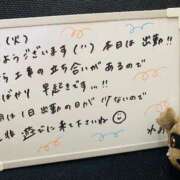 (火)
ようございます(^^) 本日は出勤!!
ら工事の立ち合いがあるので
ばやり早起きです…!!
月は1日出勤の日がけないので
非遊びに来て下さいね☺